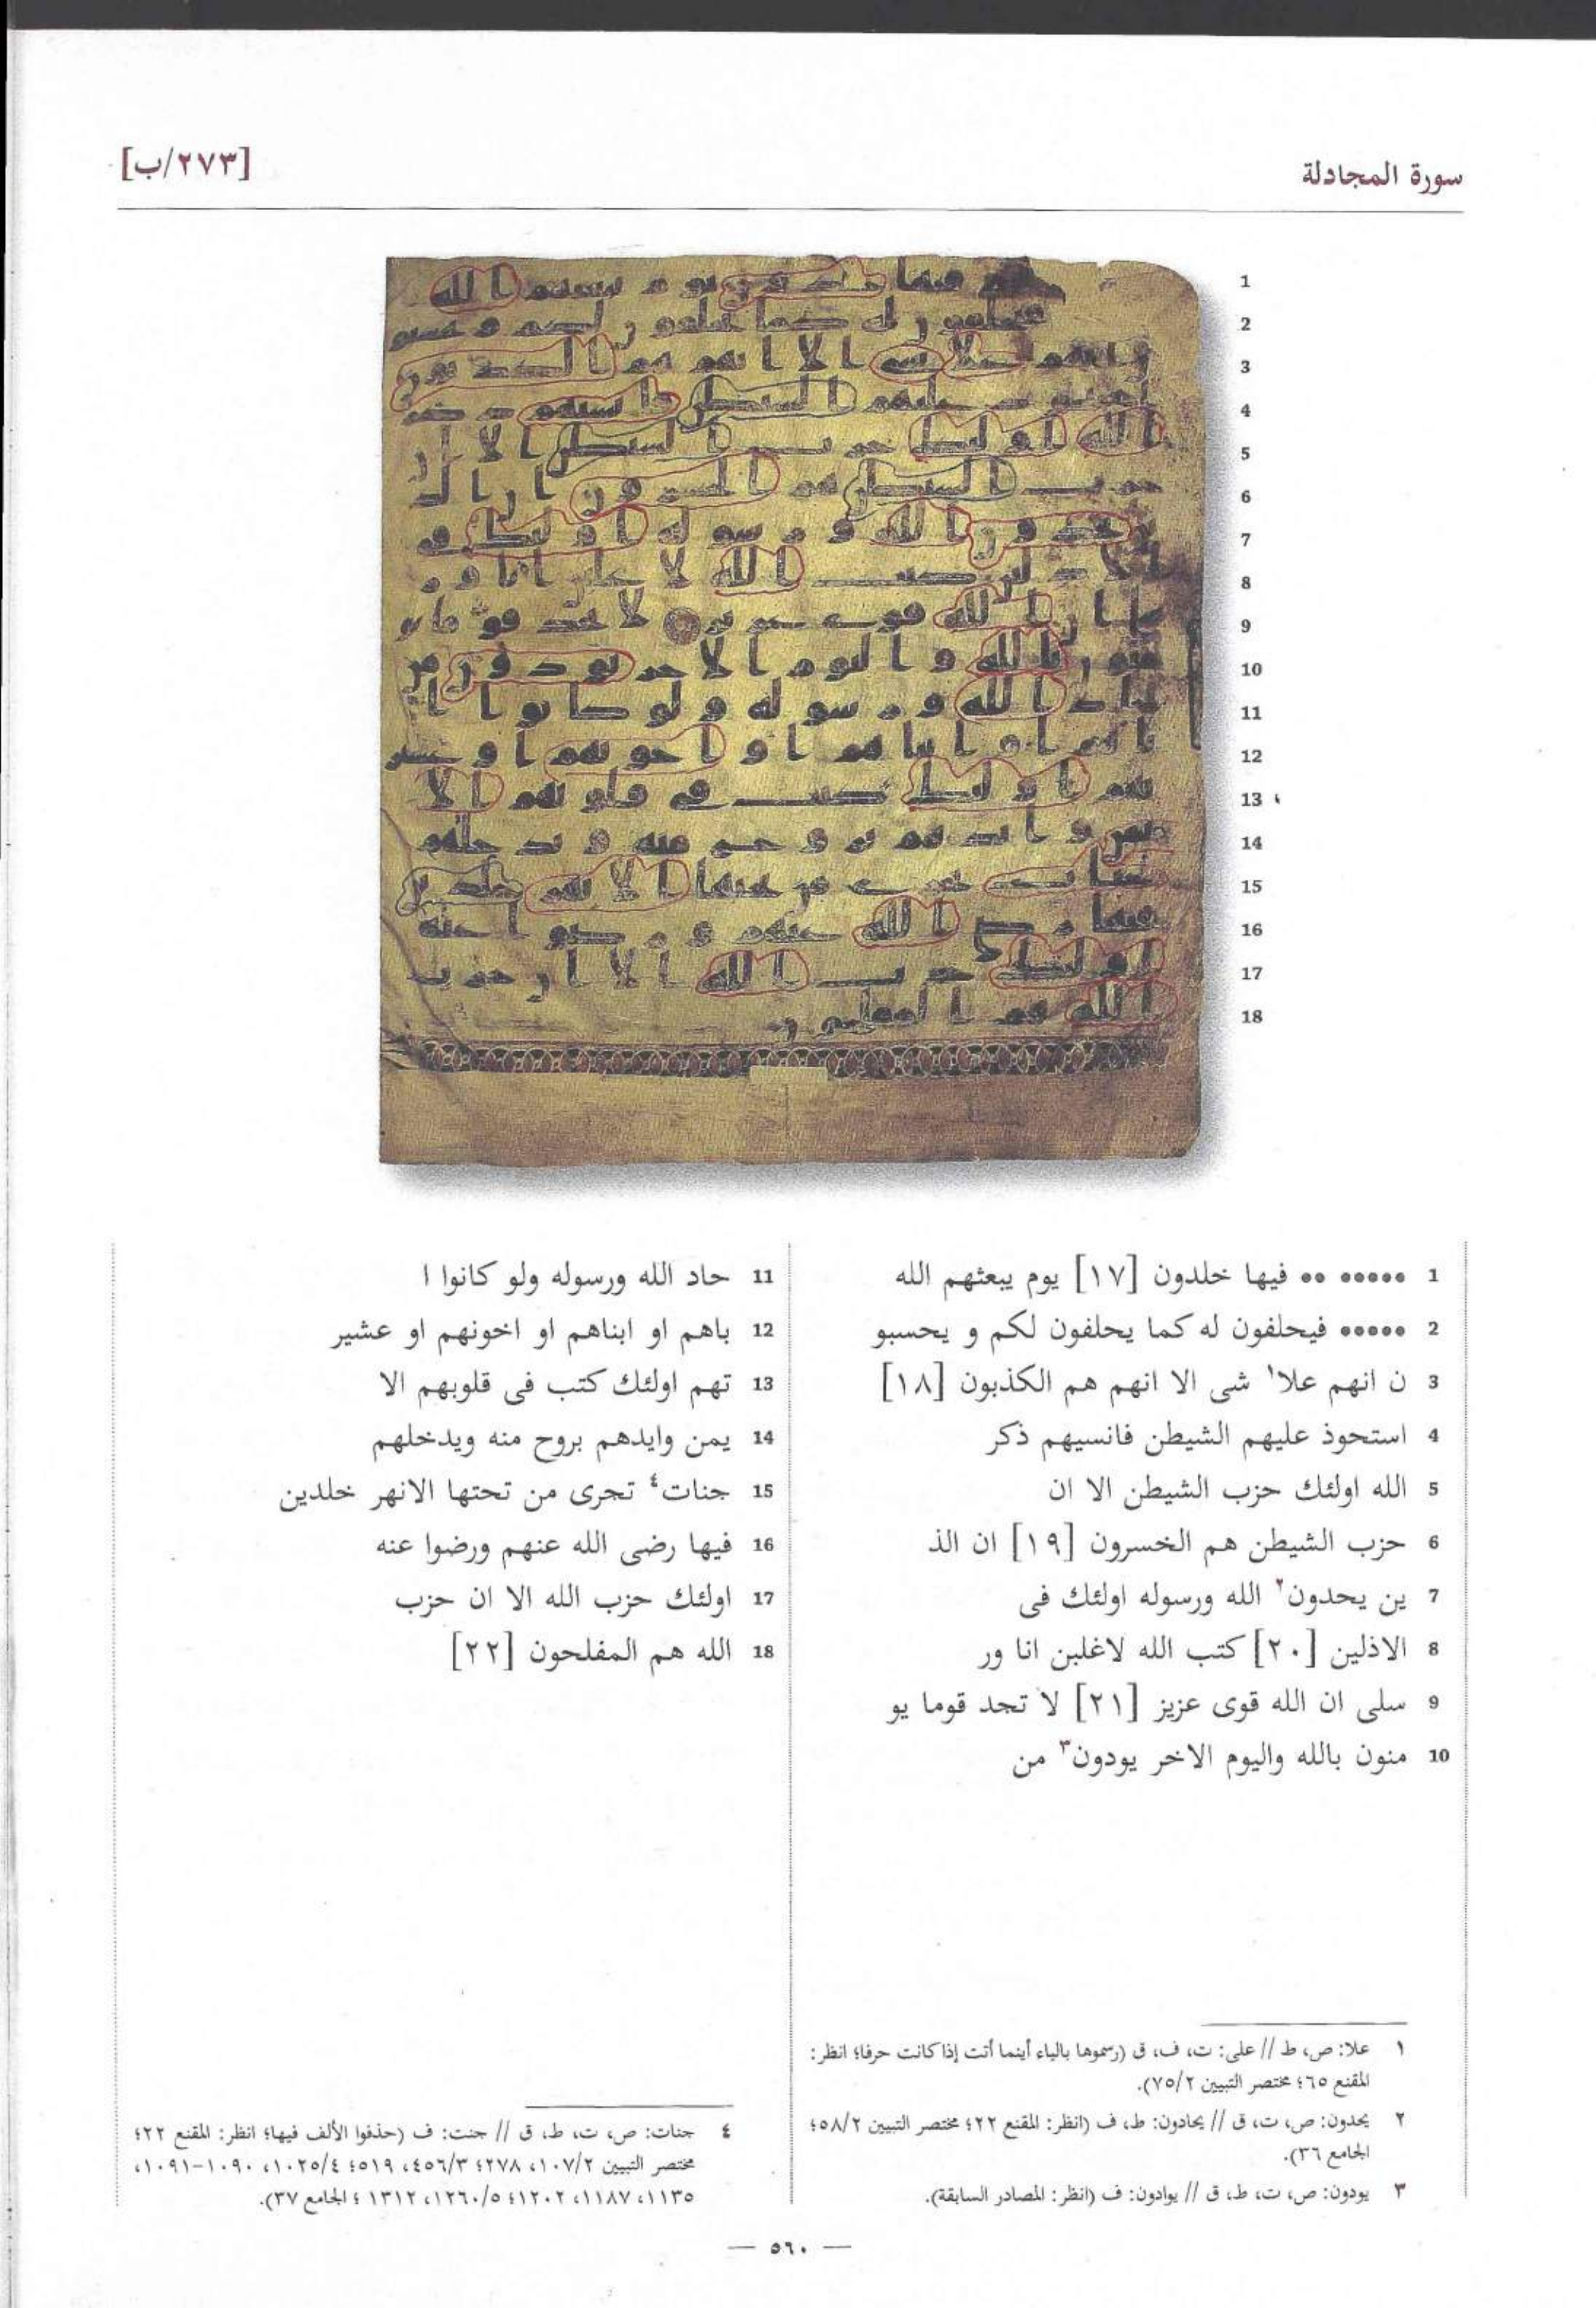 سورة المجادلة
[٢٧٣/ب]
1 ••••• •• فيها خلدون [١٧] يوم يبعثهم الله
2 ••••• فيحلفون له كما يحلفون لكم و يحسبو
3 ن انهم علا١ شى الا انهم هم الكذبون [١٨]
4 استحوذ عليهم الشيطن فانسيهم ذكر
5 الله اولئك حزب الشيطن الا ان
6 حزب الشيطن هم الخسرون [١٩] ان الذ
7 ين يحدون٢ الله ورسوله اولئك فى
8 الاذلين [٢٠] كتب الله لاغلبن انا ور
9 سلى ان الله قوى عزيز [٢١] لا تجد قوما يو
10 منون بالله واليوم الاخر يودون٣ من
11 حاد الله ورسوله ولو كانوا ا
12 باهم او ابناهم او اخونهم او عشير
13 تهم اولئك كتب فى قلوبهم الا
14 يمن وايدهم بروح منه ويدخلهم
15 جنات٤ تجرى من تحتها الانهر خلدين
16 فيها رضى الله عنهم ورضوا عنه
17 اولئك حزب الله الا ان حزب
18 الله هم المفلحون [٢٢]
١ علا: ص، ط // على: ت، ف، ق (رسموها بالياء أينما أتت إذا كانت حرفا؛ انظر:
المقنع ٦٥؛ مختصر التبيين ٧٥/٢).
٢ يحدون: ص، ت، ق // يحادون: ط، ف (انظر: المقنع ٢٢؛ مختصر التبيين ٥٨/٢؛
الجامع ٣٦).
٣ يودون: ص، ت، ط، ق // يوادون: ف (انظر: المصادر السابقة).
٤ جنات: ص، ت، ط، ق // جنت: ف (حذفوا الألف فيها؛ انظر: المقنع ٢٢؛
مختصر التبيين ١٠٧/٢، ٢٧٨؛ ٤٥٦/٣، ٥١٩؛ ١٠٢٥/٤، ١٠٩٠-١٠٩١،
١١٣٥، ١١٨٧، ١٢٠٢؛ ١٢٦٠/٥، ١٣١٢؛ الجامع ٣٧).
— ٥٦٠ —